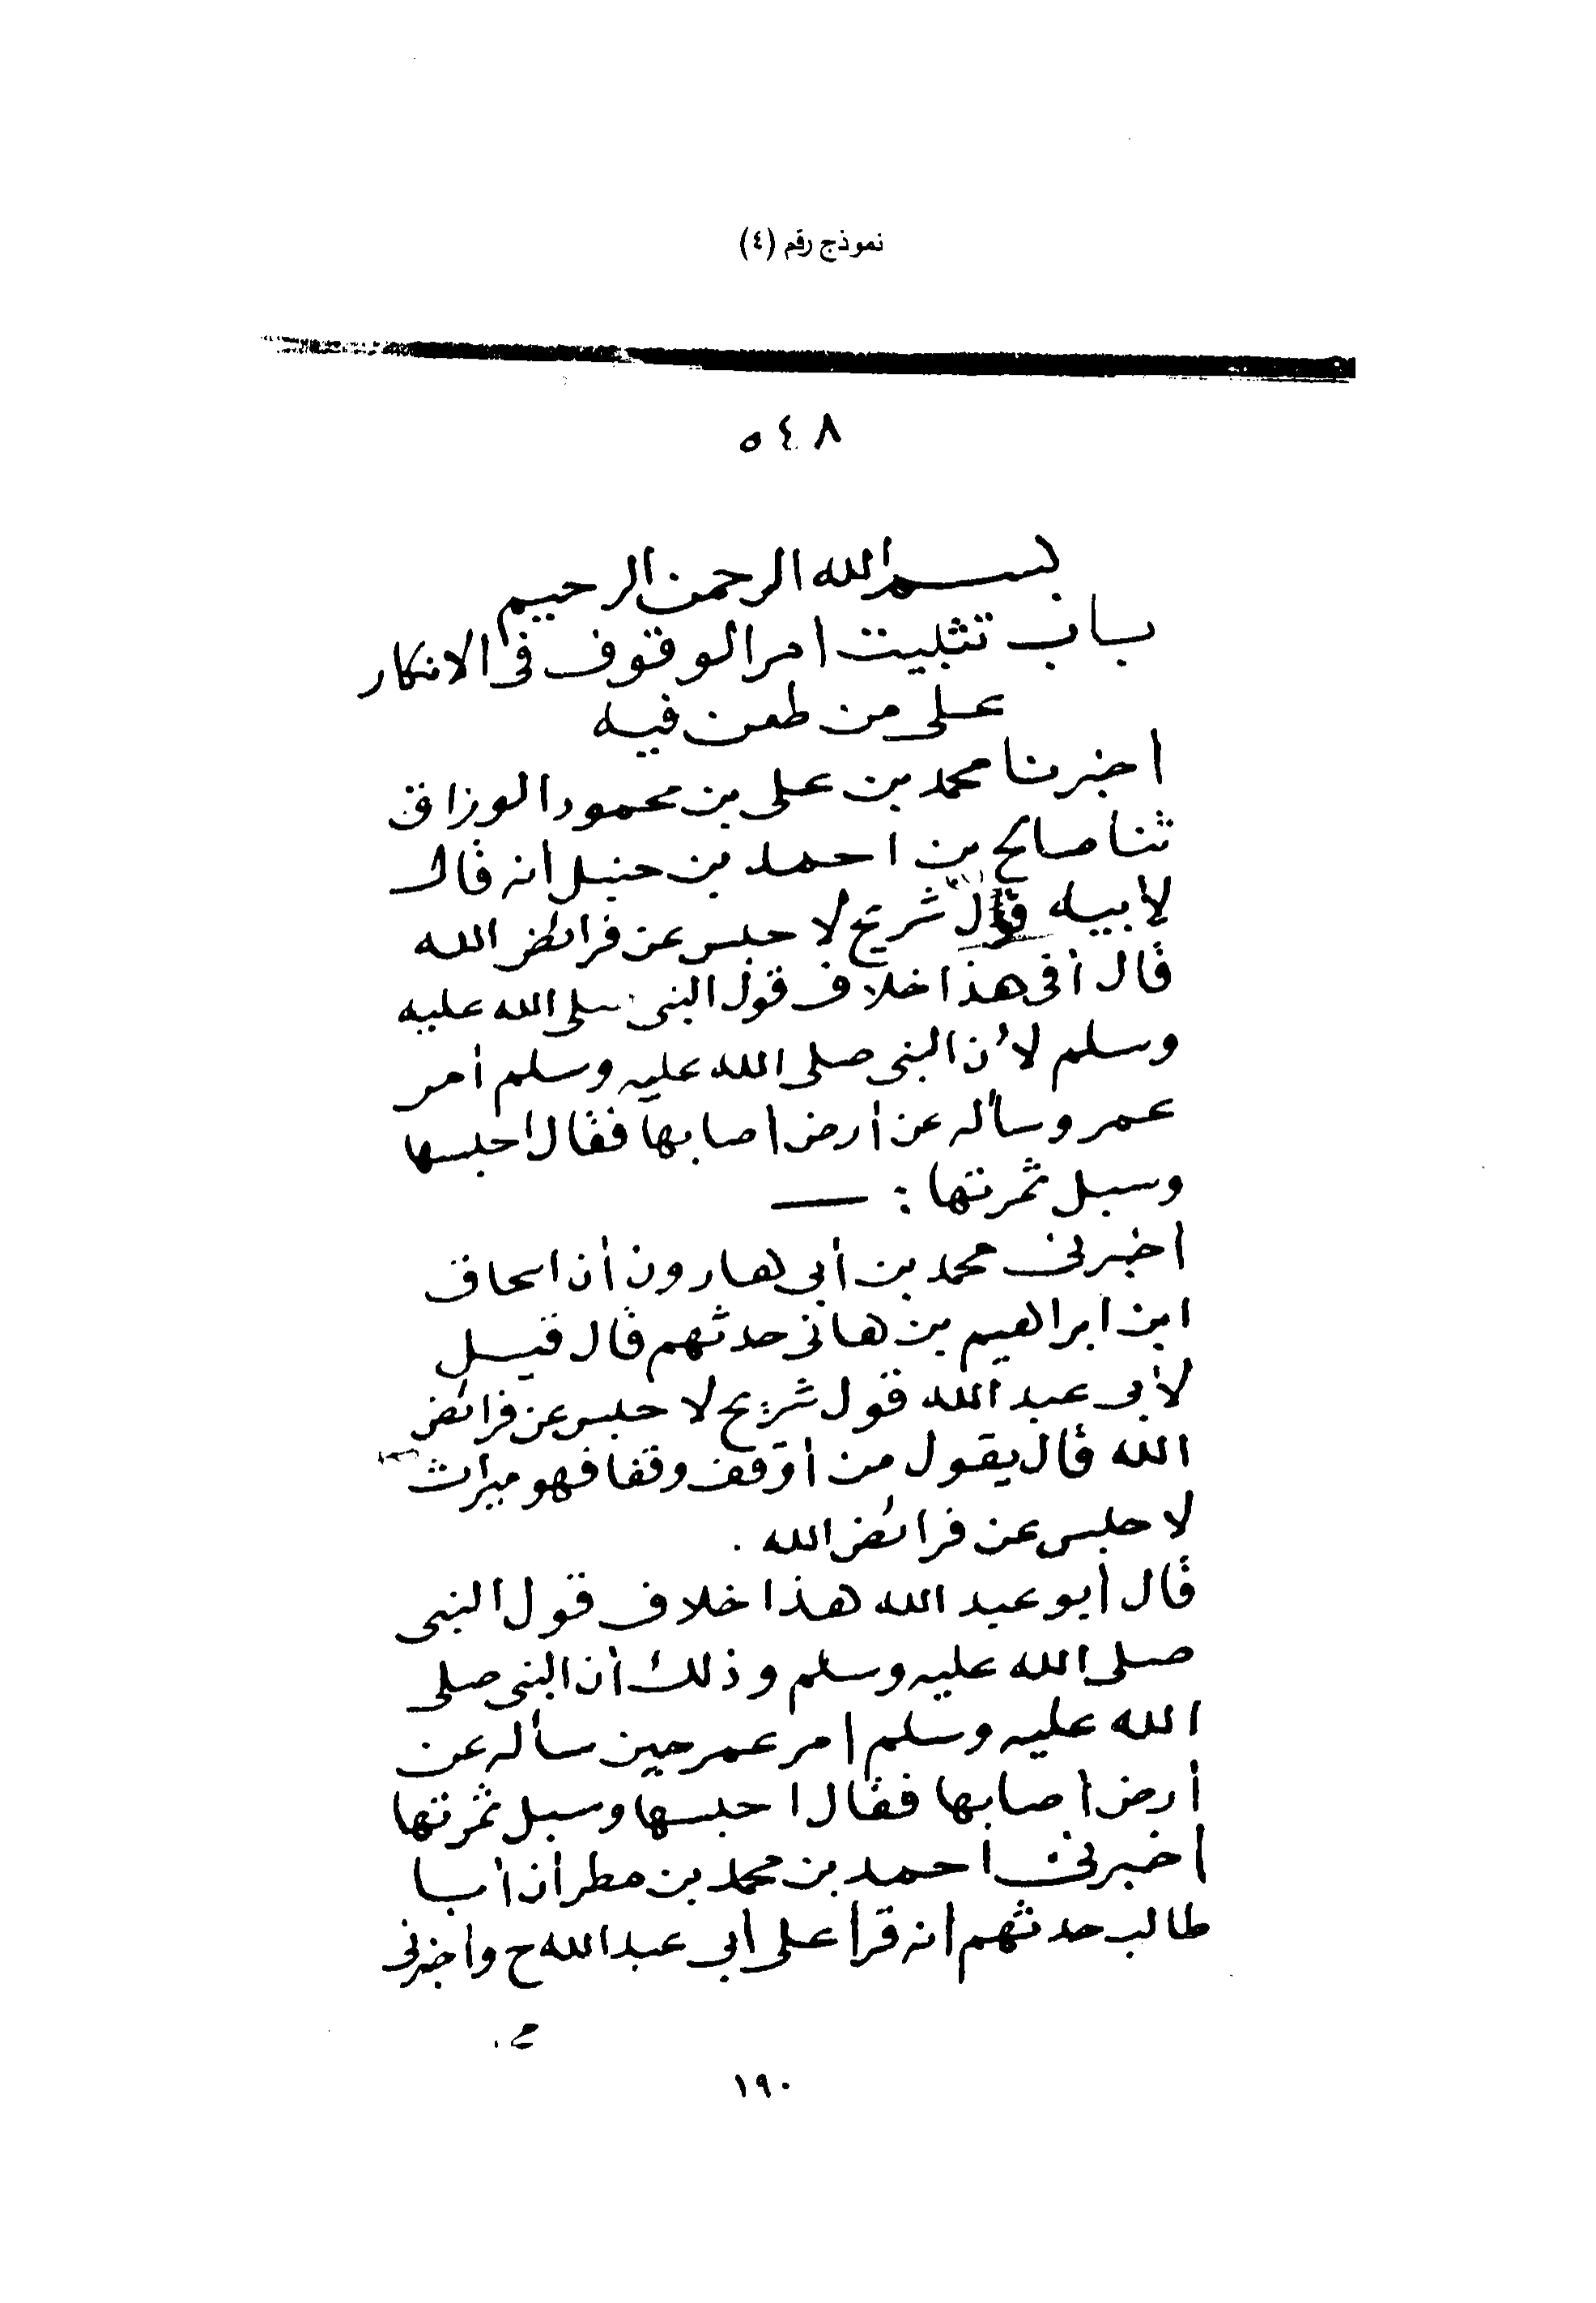 نموذج رقم (٤)
٥٤٨
بسم الله الرحمن الرحيم
باب تثبيت امر الوقوف فى الانكار
على من طعن فيه
اخبرنا محمد بن على بن محمود الوزاق
ثنا صالح بن احمد بن حنبل انه قال
لأبيه قول شريح لا حبس عن فرائض الله
قال أفى هذا خلاف قول النبى صلى الله عليه
وسلم لأن النبى صلى الله عليه وسلم أمر
عمر وسأله عن أرض اصابها فقال احبسها
وسبل ثمرتها : —
اخبرنى محمد بن أبى هارون أن اسحاق
ابن ابراهيم بن هانى حدثهم قال قيل
لأبى عبد الله قول شريح لا حبس عن فرائض
الله قال يقول من أوقف وقفا فهو ميراث
لا حبس عن فرائض الله .
قال أبو عبد الله هذا خلاف قول النبى
صلى الله عليه وسلم وذلك أن النبى صلى
الله عليه وسلم امر عمر حين سأله عن
أرض اصابها فقال احبسها وسبل ثمرتها
اخبرنى احمد بن محمد بن مطر أن أبا
طالب حدثهم انه قرا على ابى عبد الله ح واخبرنى
١٩٠